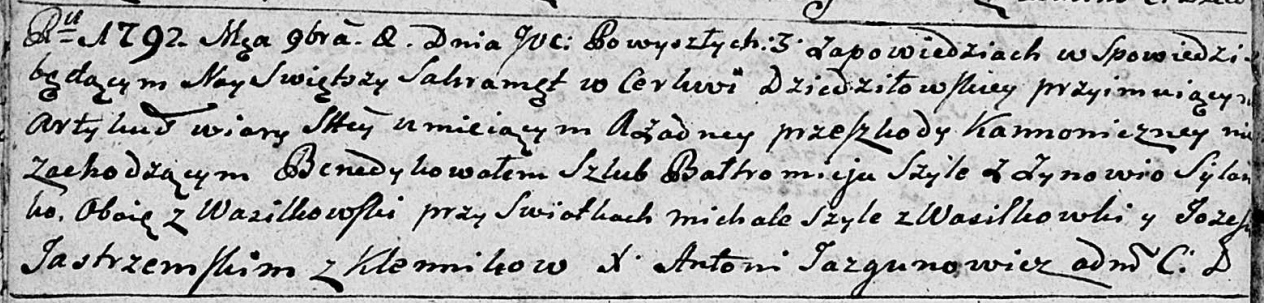 Ru 1792. Mca 9bra. 8. Dnia JVC: Powyszłych: 3. Zapowiedziach w Spowiedzi
będącym Nay Swiętszy Sakramęt w Cerkwi Dziedziłowskiey przyimuiącym
Artykuł wiary Stey umieiącym A Zadney przeszkody Kannoniczney nie
zachodzącym Benedykowałem Szlub Bałtromieju Szyle Z Zynowio Sylan
ko. Oboię z Wasilkowski przy Swiatkach michale Szyle z Wasilkowki y Jozef
Jastrzemskim z Klennikow X. Antoni Jazgunowicz adm C: D